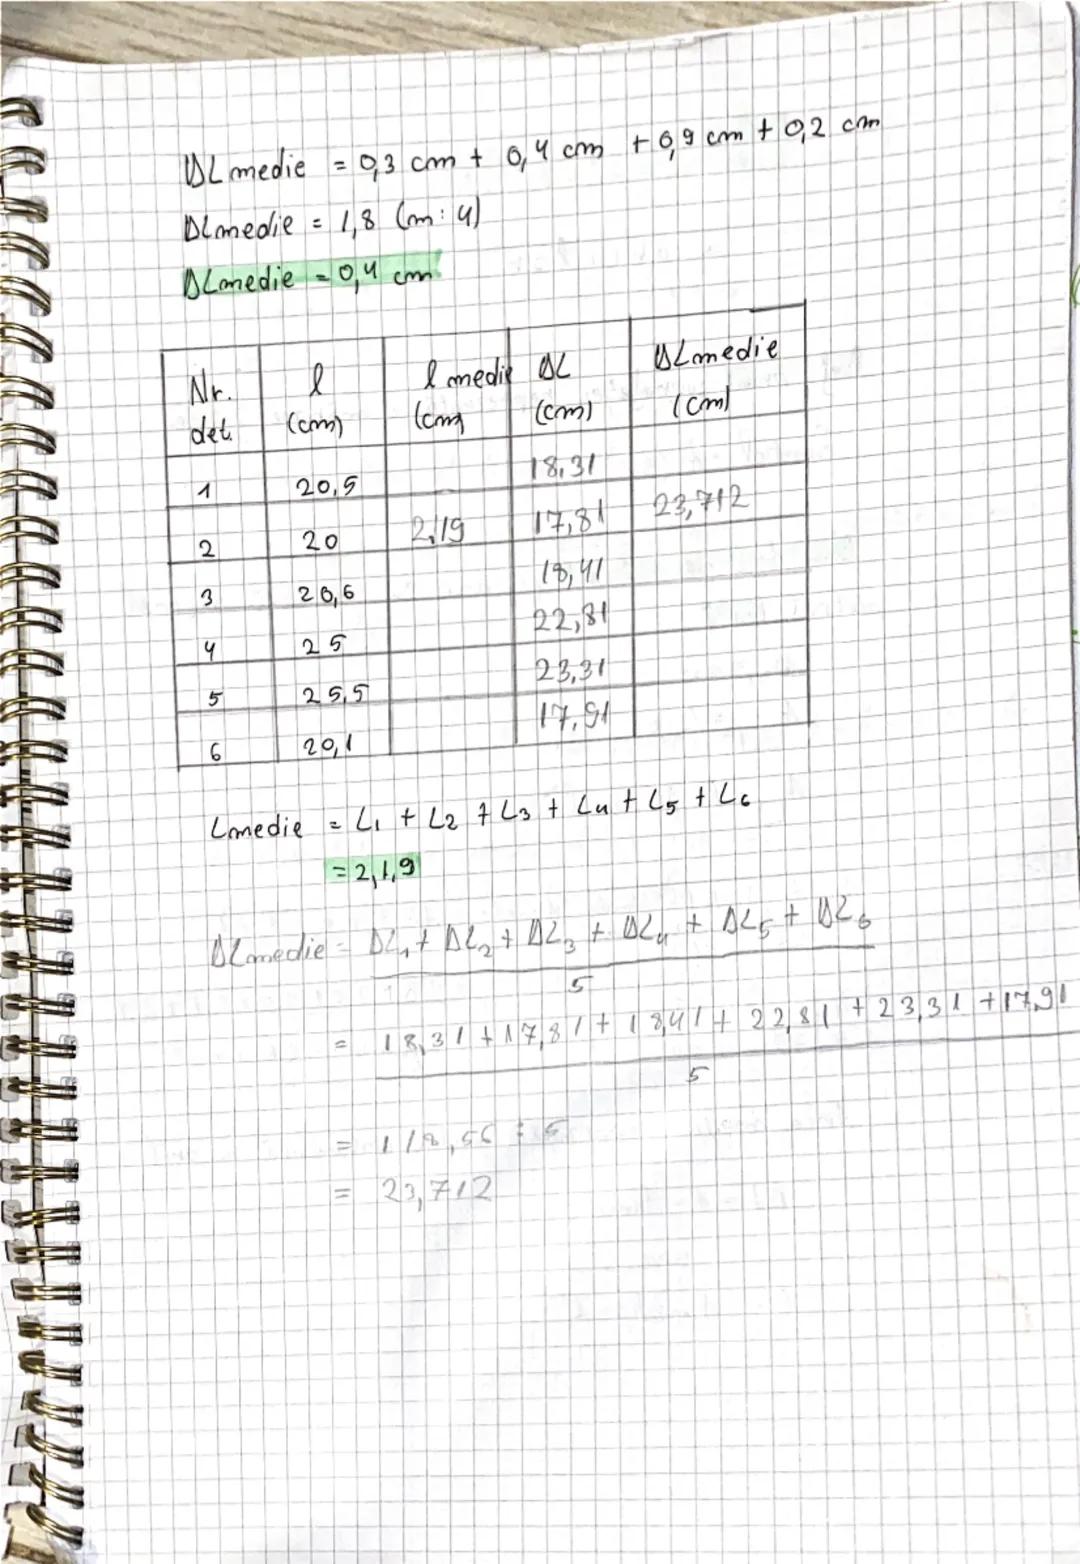 ΔLmedie = 0,3 cm + 0,4 cm + 0,9 cm + 0,2 cm
ΔLmedie = 1,8 (m : 4)
ΔLmedie = 0,4 cm
Nr. det. l (cm) l medie (cm) ΔL (cm) ΔLmedie (cm)
1 20,5 18,31
2 20 2,119 17,81 23,712
3 20,6 18,41
4 25 22,81
5 25,5 23,31
6 20,1 17,91
Lmedie = L1 + L2 + L3 + L4 + L5 + L6
= 2,1,9
ΔLmedie = ΔL1 + ΔL2 + ΔL3 + ΔL4 + ΔL5 + ΔL6
5
= 18,31 + 17,81 + 18,41 + 22,81 + 23,31 + 17,91
5
= 118,56 : 5
= 23,712